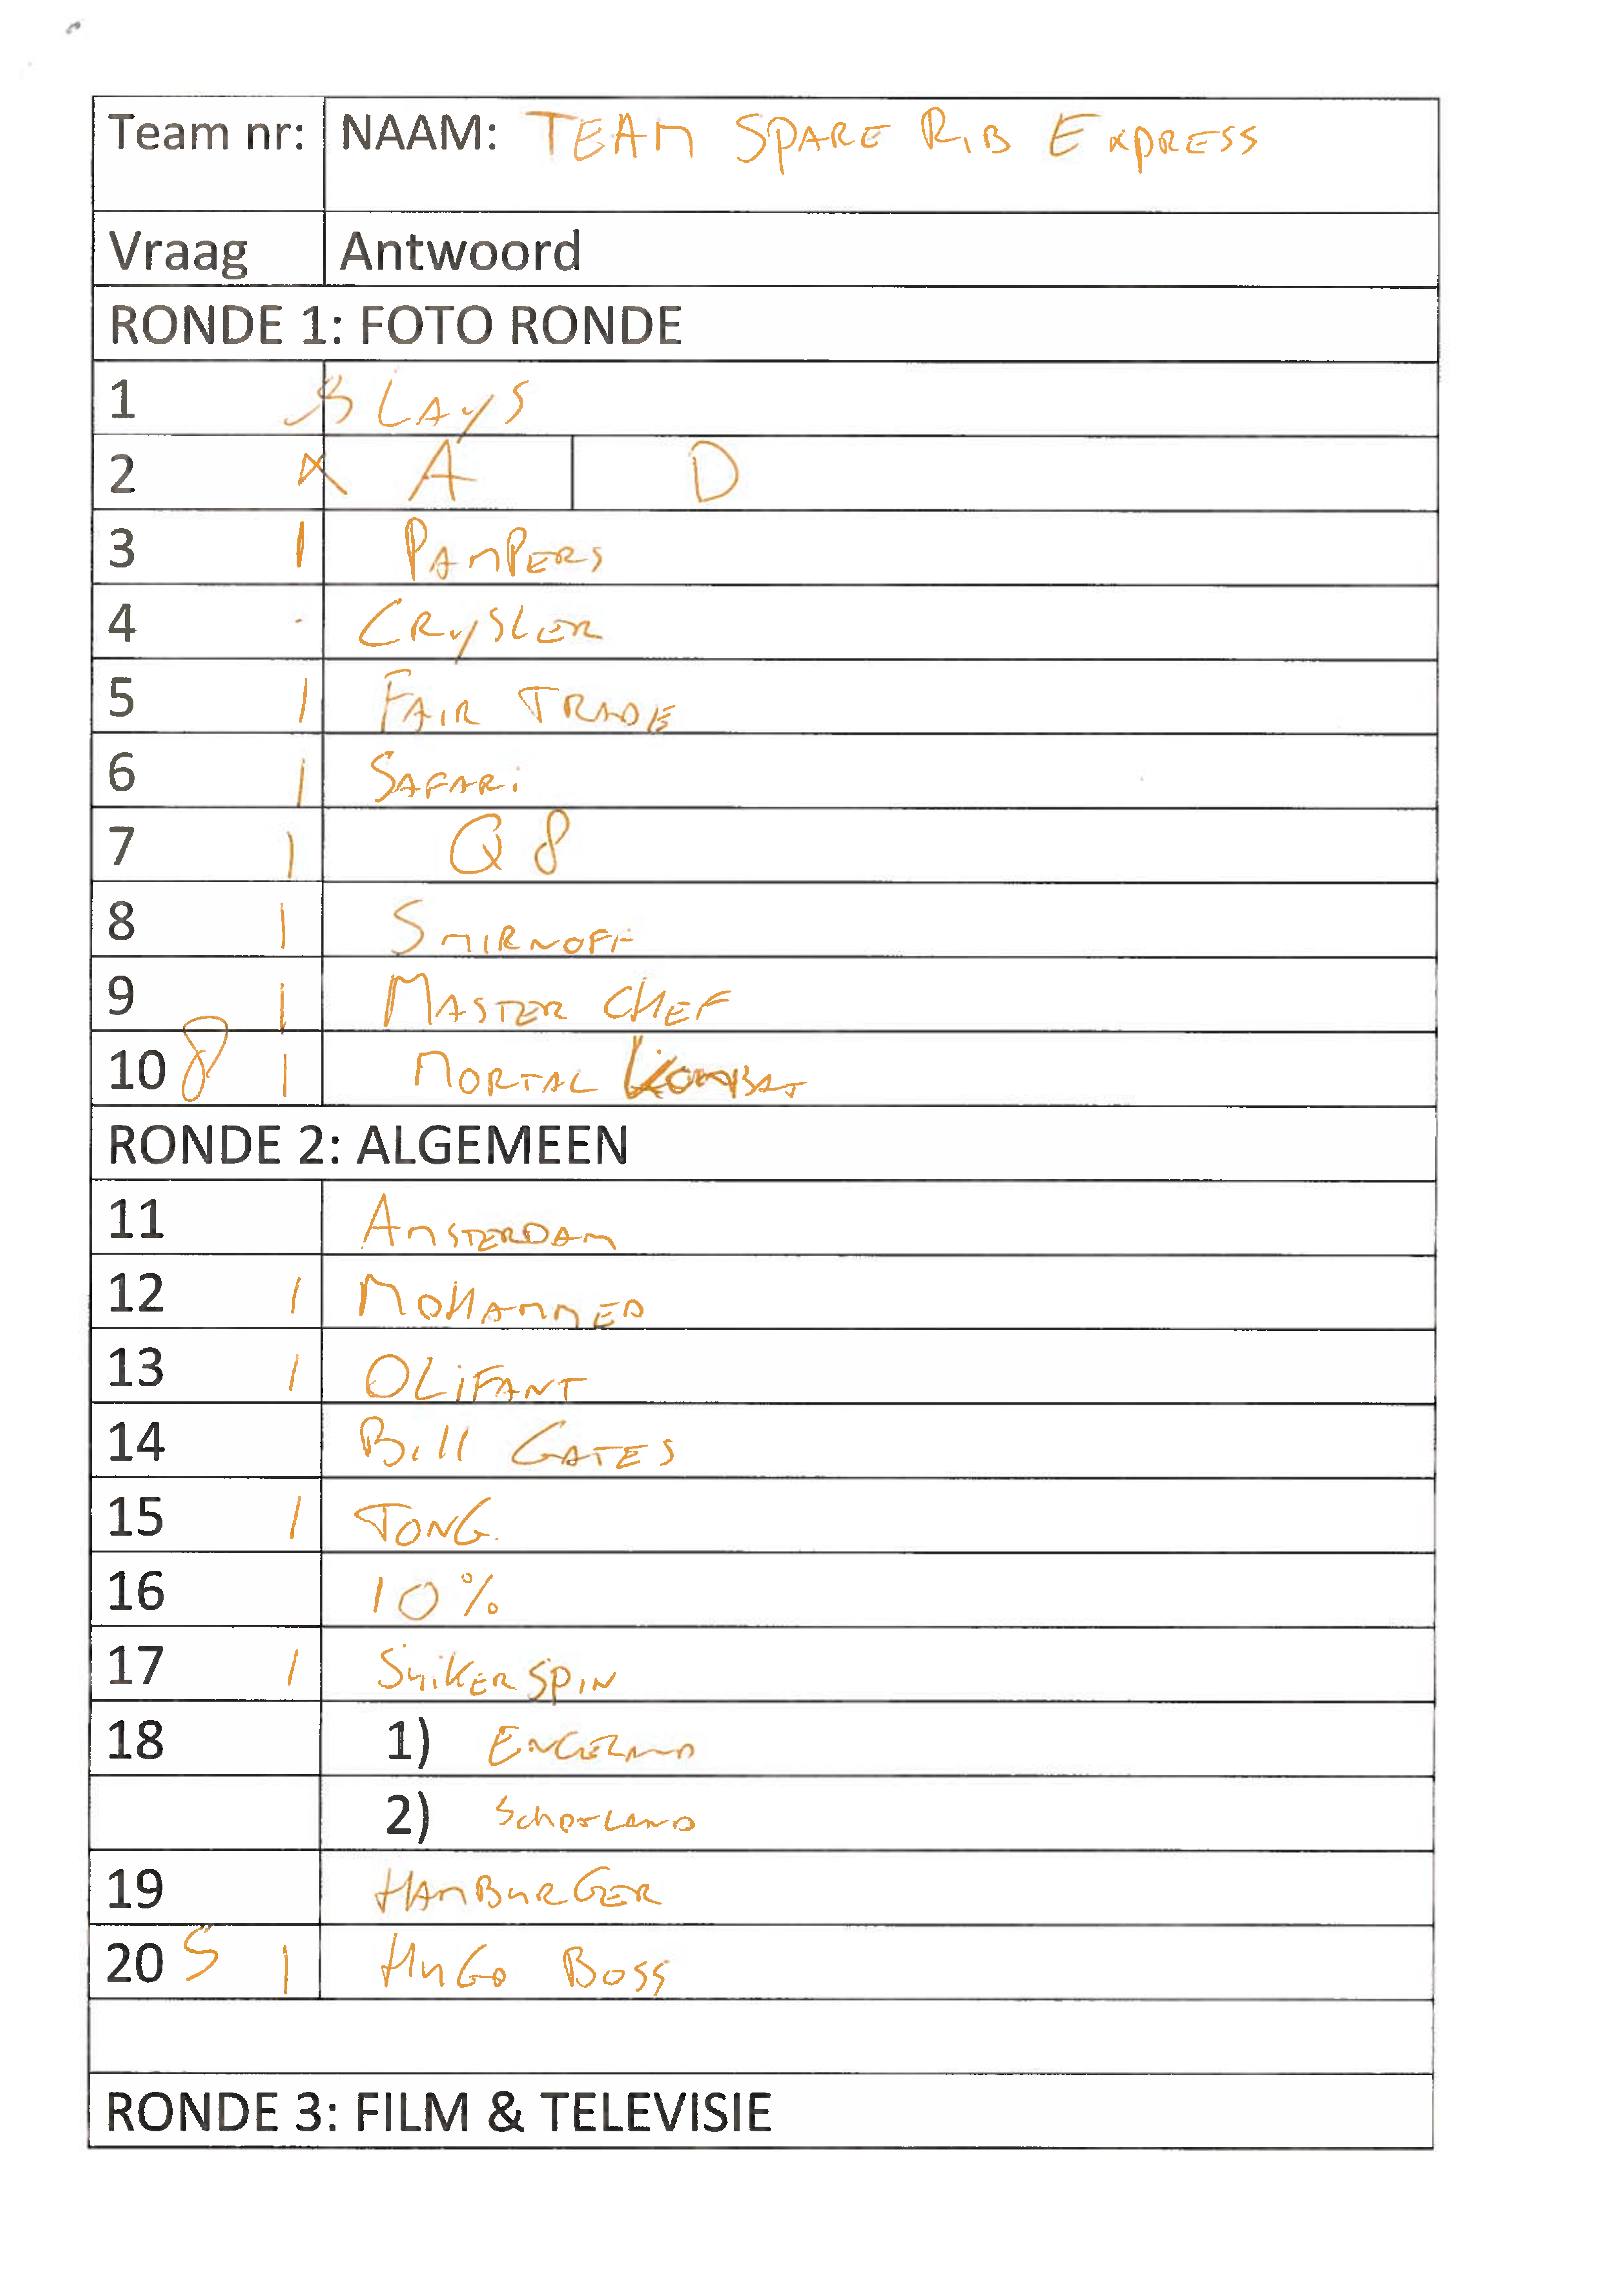 Team nr: NAAM: TEAM SPARE RIB EXPRESS
Vraag Antwoord
RONDE 1: FOTO RONDE
1 LAYS
2 A D
3 1 PAMPERS
4 CRYSLER
5 1 FAIR TRADE
6 1 SAFARI
7 1 Q8
8 1 SMIRNOFF
9 1 MASTER CHEF
10 8 1 MORTAL KOMBAT
RONDE 2: ALGEMEEN
11 AMSTERDAM
12 1 MOHAMMED
13 1 OLIFANT
14 Bill GATES
15 1 TONG.
16 10%
17 1 SUIKERSPIN
18 1) ENGELAND
2) SCHOTLAND
19 HAMBURGER
20 5 1 HUGO BOSS
RONDE 3: FILM & TELEVISIE